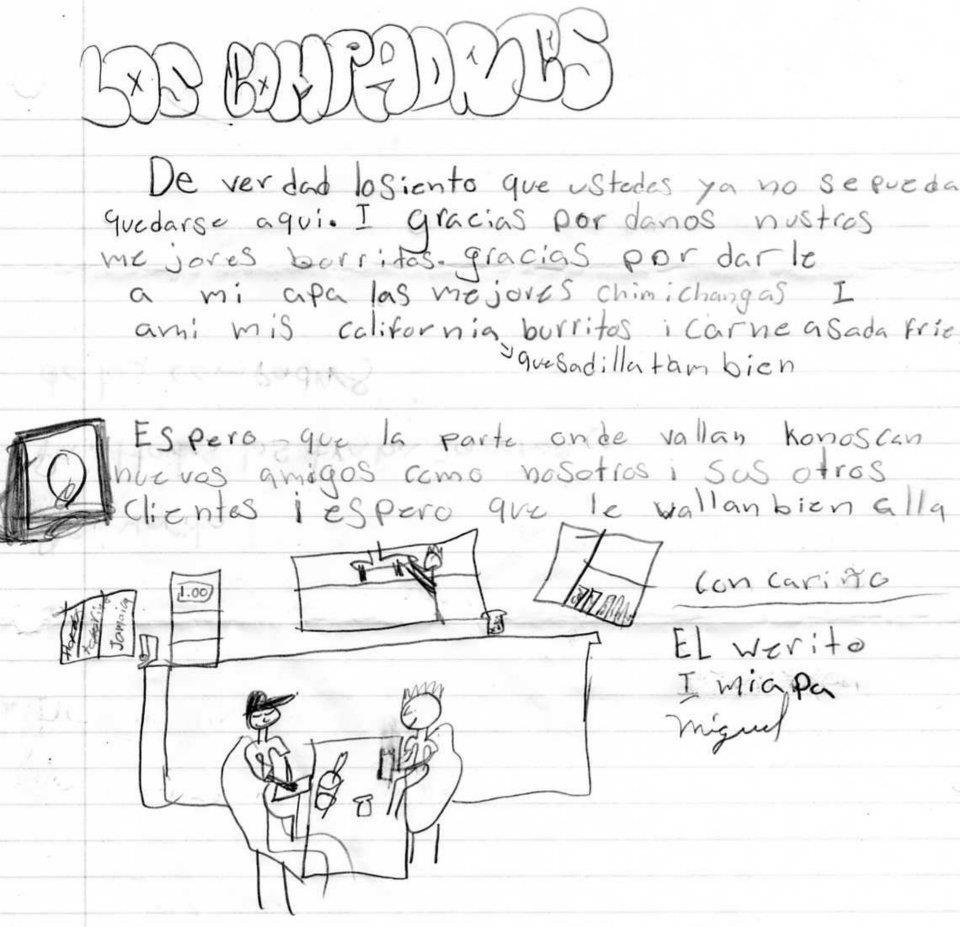 LOS COMPADRES
De verdad losiento que ustedes ya no se pueda
quedarse aqui. I gracias por danos nustros
mejores borritos. gracias por darle
a mi apa las mejores chimichangas I
ami mis california burritos i carne asada frie
quesadilla tambien
Espero que la parte onde vallan konoscan
nuevos amigos como nosotros i sus otros
clientes i espero que le vallan bien alla
1.00
Jamaica
con cariño
EL werito
I mi apa
Miguel